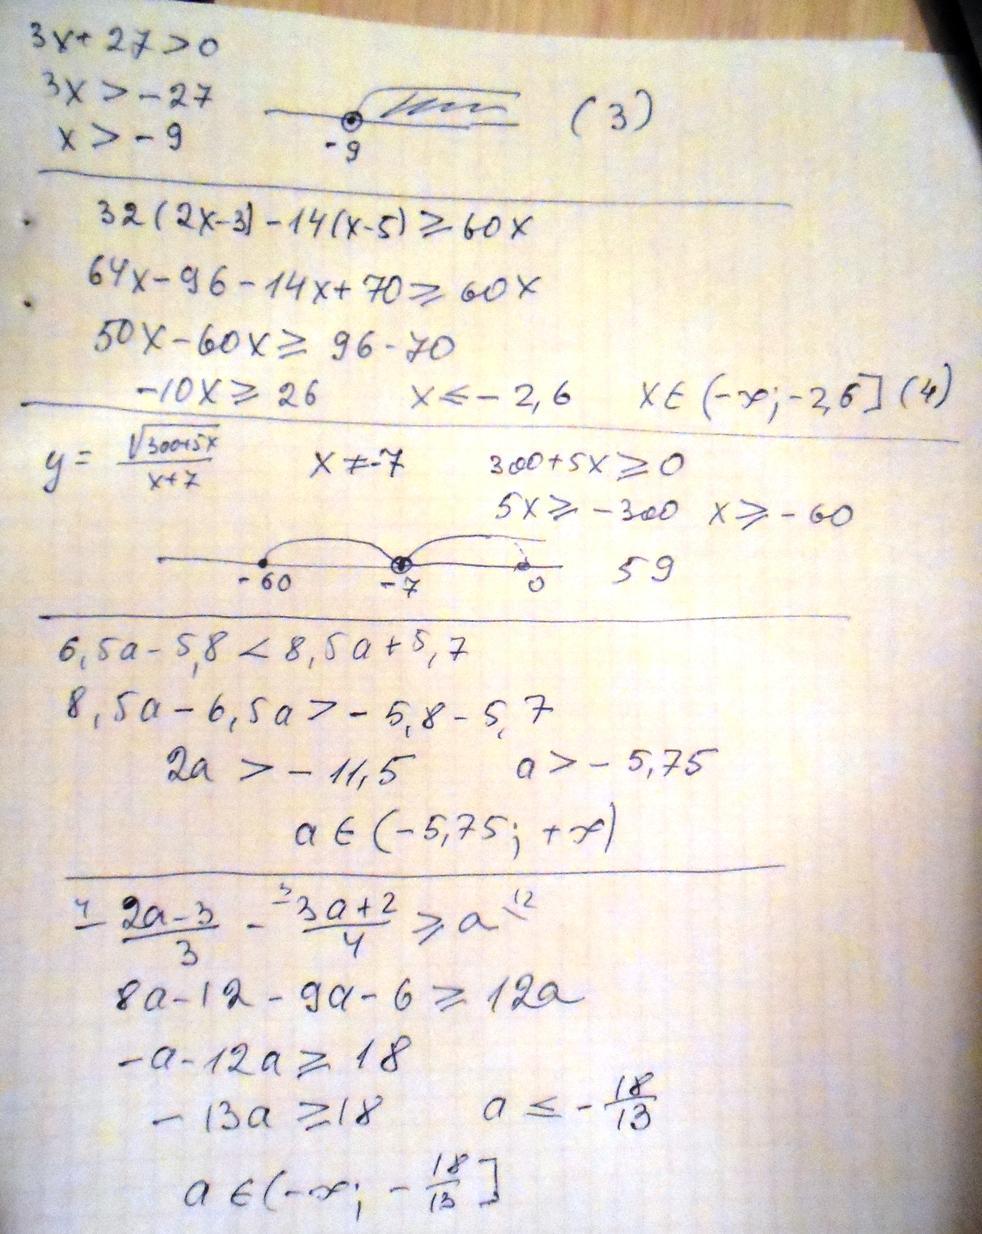 3x+27>0
3x>-27
x>-9
-9
(3)
32(2x-3)-14(x-5)≥60x
64x-96-14x+70≥60x
50x-60x≥96-70
-10x≥26 x≤-2,6 x∈(-∞;-2,6](4)
y=√(300+5x)/(x+7) x≠-7 300+5x≥0
5x≥-300 x≥-60
-60 -7 0 59
6,5a-5,8<8,5a+5,7
8,5a-6,5a>-5,8-5,7
2a>-11,5 a>-5,75
a∈(-5,75;+∞)
4 (2a-3)/3 - 3 (3a+2)/4 ≥ a 12
8a-12-9a-6≥12a
-a-12a≥18
-13a≥18 a≤-18/13
a∈(-∞;-18/13]